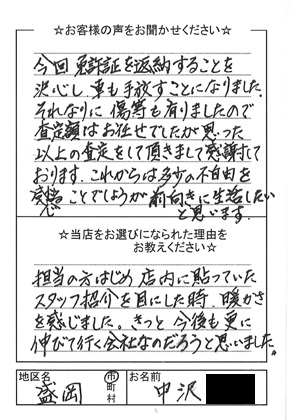 ☆お客様の声をお聞かせください☆
今回免許証を返納することを
決心し、車も手放すことになりました。
それなりに傷等も有りましたので
査定額はお任せでしたが思った
以上の査定をして頂きまして感謝して
おります。これからは多少の不自由を
感じることでしょうが前向きに生活したい
と思います。
☆当店をお選びになられた理由を
お教えください☆
担当の方はじめ店内に貼っていた
スタッフ紹介を目にした時、暖かさ
を感じました。きっと今後も更に
伸びて行く会社なのだろうと思いました。
地区名 盛岡 市町村 お名前 中沢